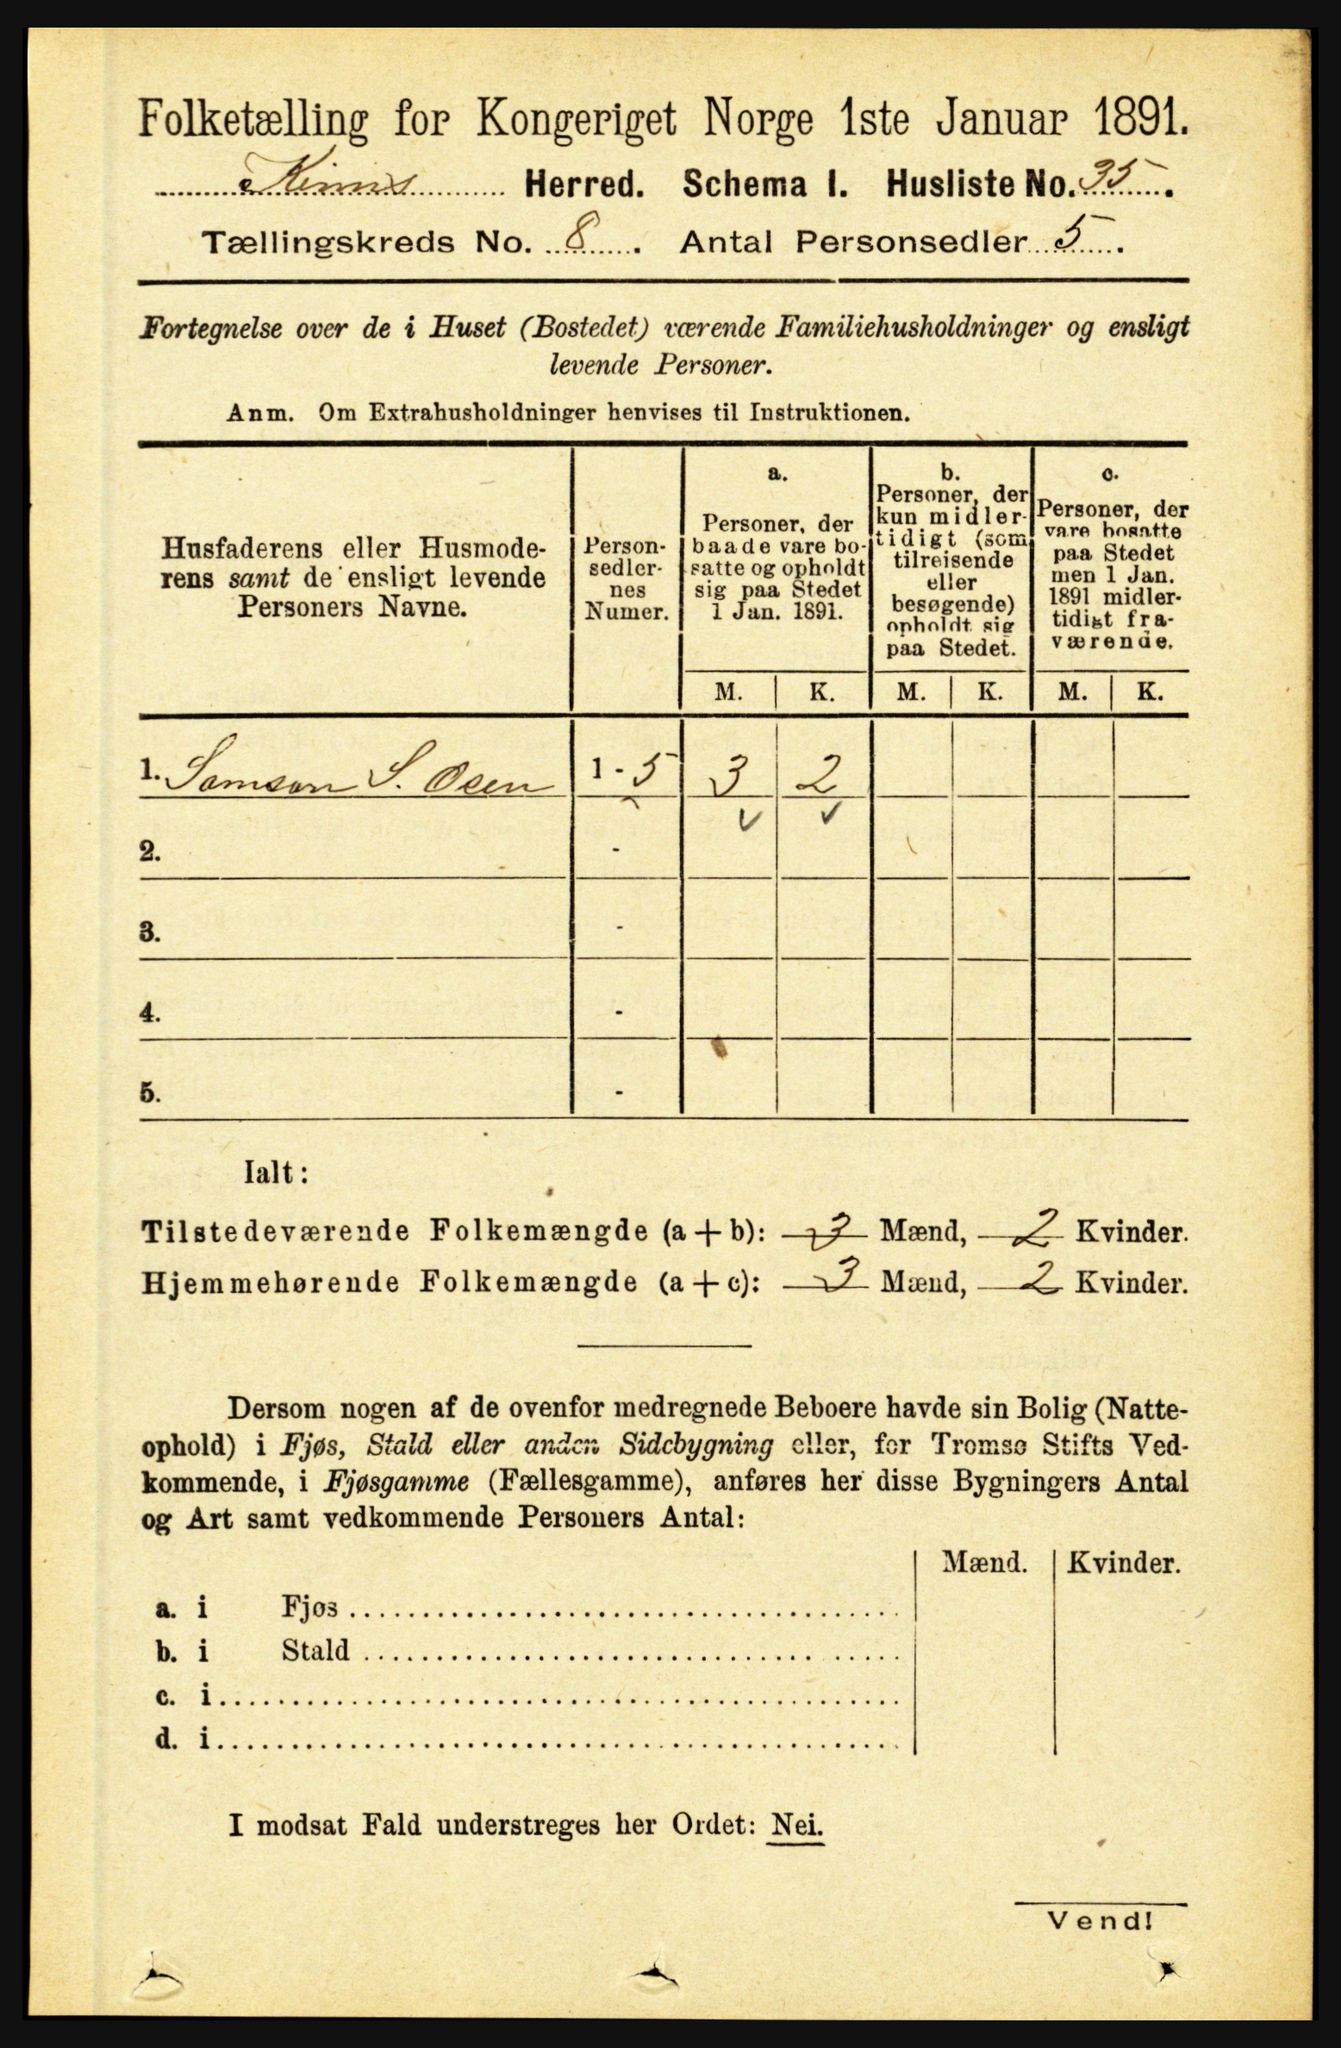 Folketælling for Kongeriget Norge 1ste Januar 1891.
Kinns Herred. Schema I. Husliste No. 35.
Tællingskreds No. 8. Antal Personsedler 5.
Fortegnelse over de i Huset (Bostedet) værende Familiehusholdninger og ensligt
levende Personer.
Anm. Om Extrahusholdninger henvises til Instruktionen.
Husfaderens eller Husmode-
rens samt de ensligt levende
Personers Navne.
Person-
sedler-
nes
Numer.
a.
Personer, der
baade vare bo-
satte og opholdt
sig paa Stedet
1 Jan. 1891.
b.
Personer, der
kun midler-
tidigt (som
tilreisende
eller
besøgende)
opholdt sig
paa Stedet.
c.
Personer, der
vare bosatte
paa Stedet
men 1 Jan.
1891 midler-
tidigt fra-
værende.
M. K. M. K. M. K.
1. Samson S. Osen 1 - 5 3 2
2. -
3. -
4. -
5. -
Ialt:
Tilstedeværende Folkemængde (a + b): 3 Mænd, 2 Kvinder.
Hjemmehørende Folkemængde (a + c): 3 Mænd, 2 Kvinder.
Dersom nogen af de ovenfor medregnede Beboere havde sin Bolig (Natte-
ophold) i Fjøs, Stald eller anden Sidebygning eller, for Tromsø Stifts Ved-
kommende, i Fjøsgamme (Fællesgamme), anføres her disse Bygningers Antal
og Art samt vedkommende Personers Antal:
Mænd. Kvinder.
a. i Fjøs
b. i Stald
c. i
d. i
I modsat Fald understreges her Ordet: Nei.
Vend!